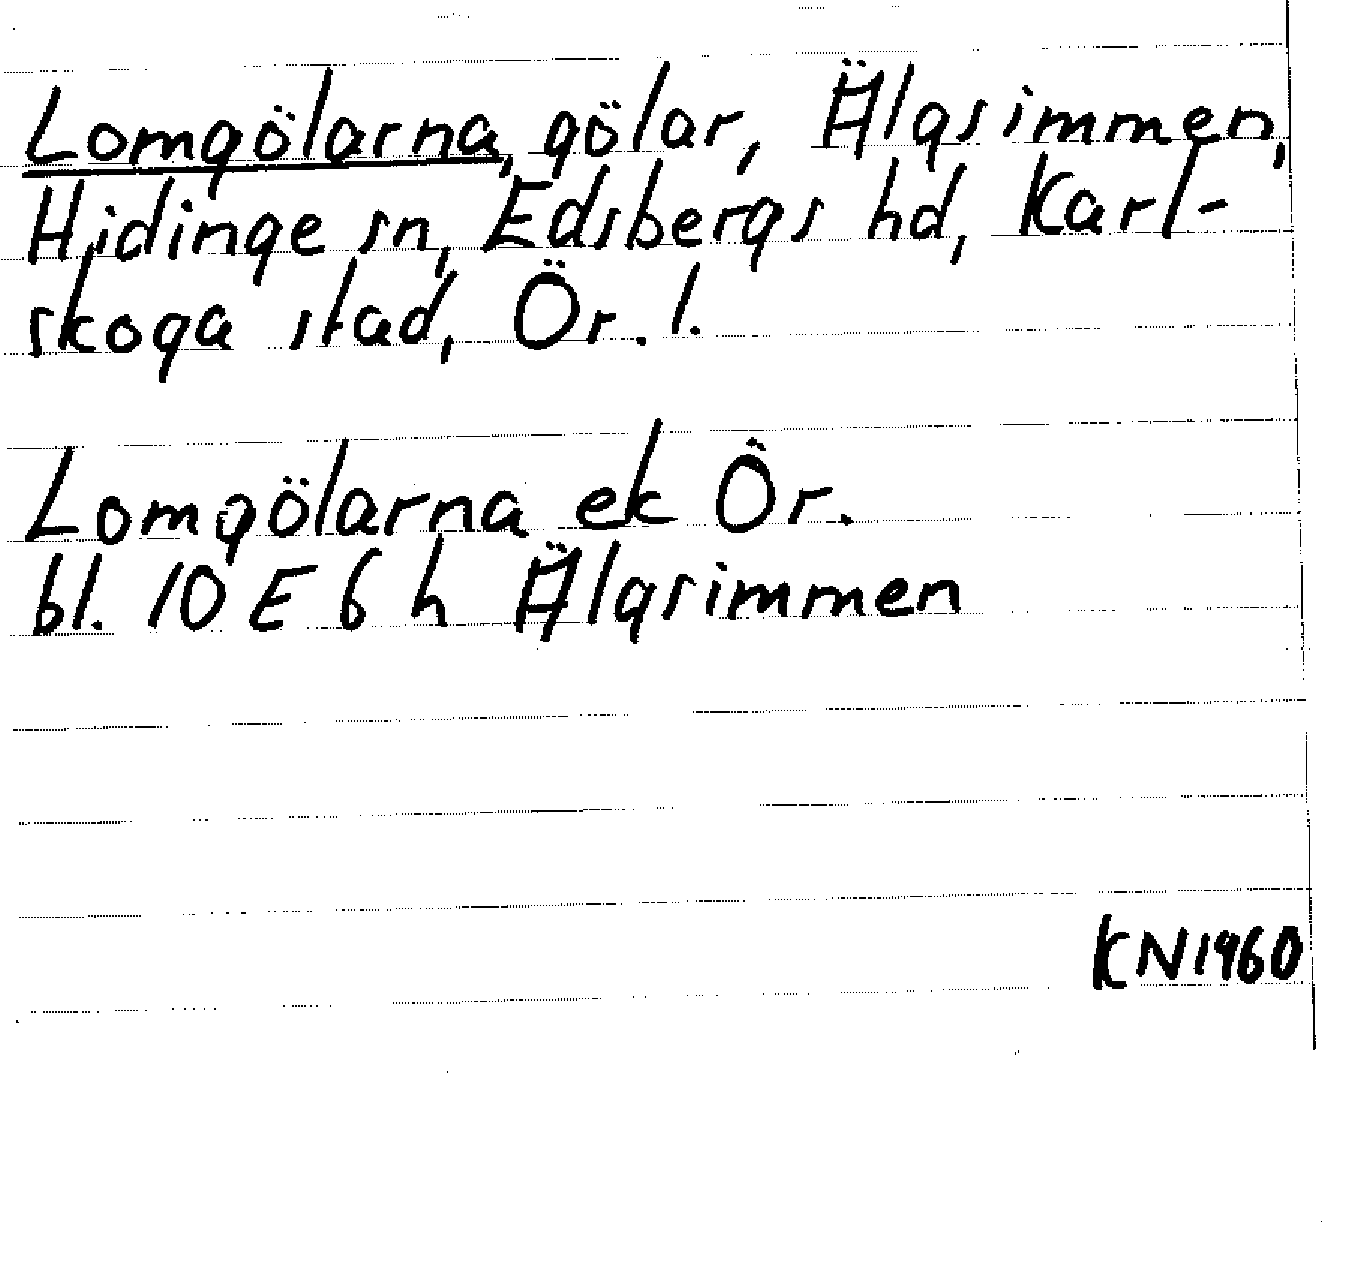 Lomgölarna, gölar, Älgsimmen,
Hidinge sn, Edsbergs hd, Karl-
skoga stad, Ör. l.
Lomgölarna ek Ör.
bl. 10 E 6 h Älgsimmen
KN1960